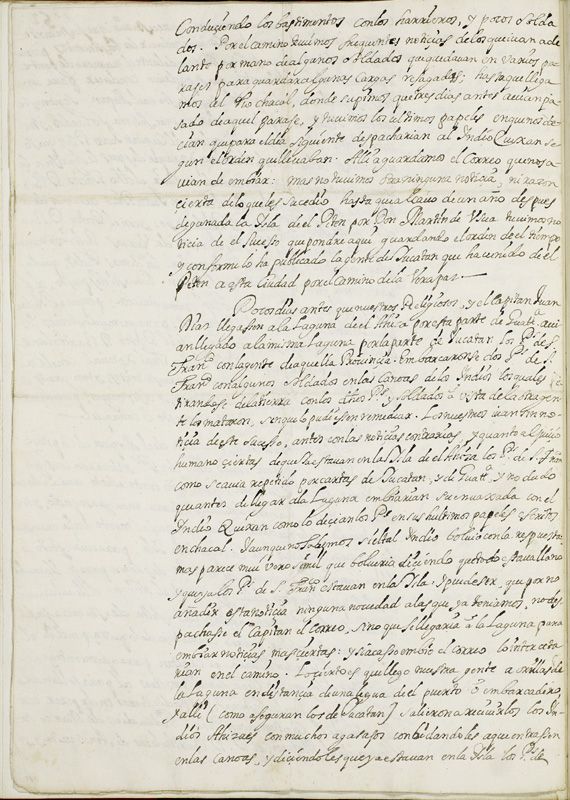 Conduçiendo los bastimentos con los harrieros, y pocos solda
dos. Por el camino tuuimos frequentes noticias de los que iuan ade
lante por mano de algunos soldados que quedauan en varios pa
rajes para guardar algunas cargas resagadas; hasta que llega
mos el Rio chacal, donde supimos que tres dias antes auian pa
sado de aquel paraje, y tuuimos los vltimos papeles en que nos de
cian que para el dia siguiente despacharian al Indio Quixan se
gun el orden que lleuaban. Alli aguardamos el Correo que nos a
uian de embiar: mas no tuuimos otra ninguna noticia, ni razon
cierta de lo que les sucedio hasta que a cauo de un año despues
de ganada la Isla de el Peten por Don Martin de Vsua tuuimos no
ticia de el suceso que pondre aqui, guardando el orden de el tiempo
y conforme lo ha publicado la gente de Yucatan que ha venido de el
Peten a esta Ciudad por el camino de la Verapaz.
Pocos dias antes que nuestros Religiosos, y el Capitan Juan
Dias llegassen a la laguna de el Ahiza por esta parte de Guata aui
an llegado a la misma laguna por la parte de Yucatan los Ps de S.
Franco con la gente de aquella Prouincia. Embarcaronse dos Ps de S.
Franco con algunos soldados en las Canoas de los Indios los quales re
tirandose de la tierra con los dichos Ps y soldados a vista de la otra gen
te los mataron, sin que lo pudiessen remediar. Los nuestros iuan sin no
ticia de este suceso, antes con las noticias contrarias, y quanto al juicio
humano ciertas de que ya estauan en la Isla de el Ahiza los Ps de S. Franco
como se auia repetido por cartas de Yucatan, y de Guata y no dudo
que antes de llegar a la Laguna embiarian su embaxada con el
Indio Quixan como lo decian los Ps en sus vltimos papeles escritos
en chacal. Y aunque no sabemos si el tal Indio boluio con la respuesta
mas parece muy verosimil que bolueria diciendo que todo estaua llano
y que ya los Ps de S. Franco estauan en la Isla. Y puede ser, que por no
añadir esta noticia ninguna nouedad a las que ya teniamos, no des
pachasse el Capitan el Correo, sino que se llegaria a la Laguna para
embiar noticias mas ciertas: y si acaso embio el correo lo interceta
rian en el camino. Lo cierto es que llego nuestra gente a orillas de
la Laguna en distancia de una legua de el puerto o embarcadero,
y alli (como aseguran los de Yucatan) salieron a reciuirlos los In
dios Ahizaes con muchos agasajos conbidandoles a que entrassen
en las canoas, y diciendoles que ya estauan en la Isla los Ps de